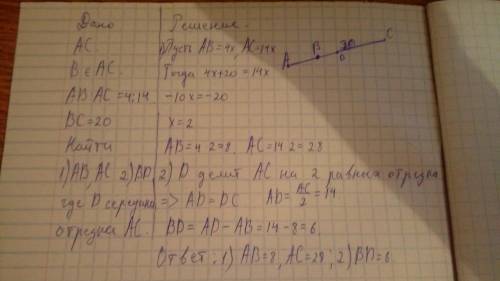 Дано
AC.
B ∈ AC.
AB:AC=4:14
BC=20
Найти
1) AB, AC 2) BD
где D середина
отрезка AC.
Решение.
Пусть AB=4x, AC=14x
Тогда 4x+20=14x
-10x=-20
x=2
AB=4·2=8, AC=14·2=28
2) D делит AC на 2 равных отрезка
=> AD=DC AD=AC/2=14
BD=AD-AB=14-8=6.
Ответ: 1) AB=8, AC=28; 2) BD=6.
A B 20 C
D